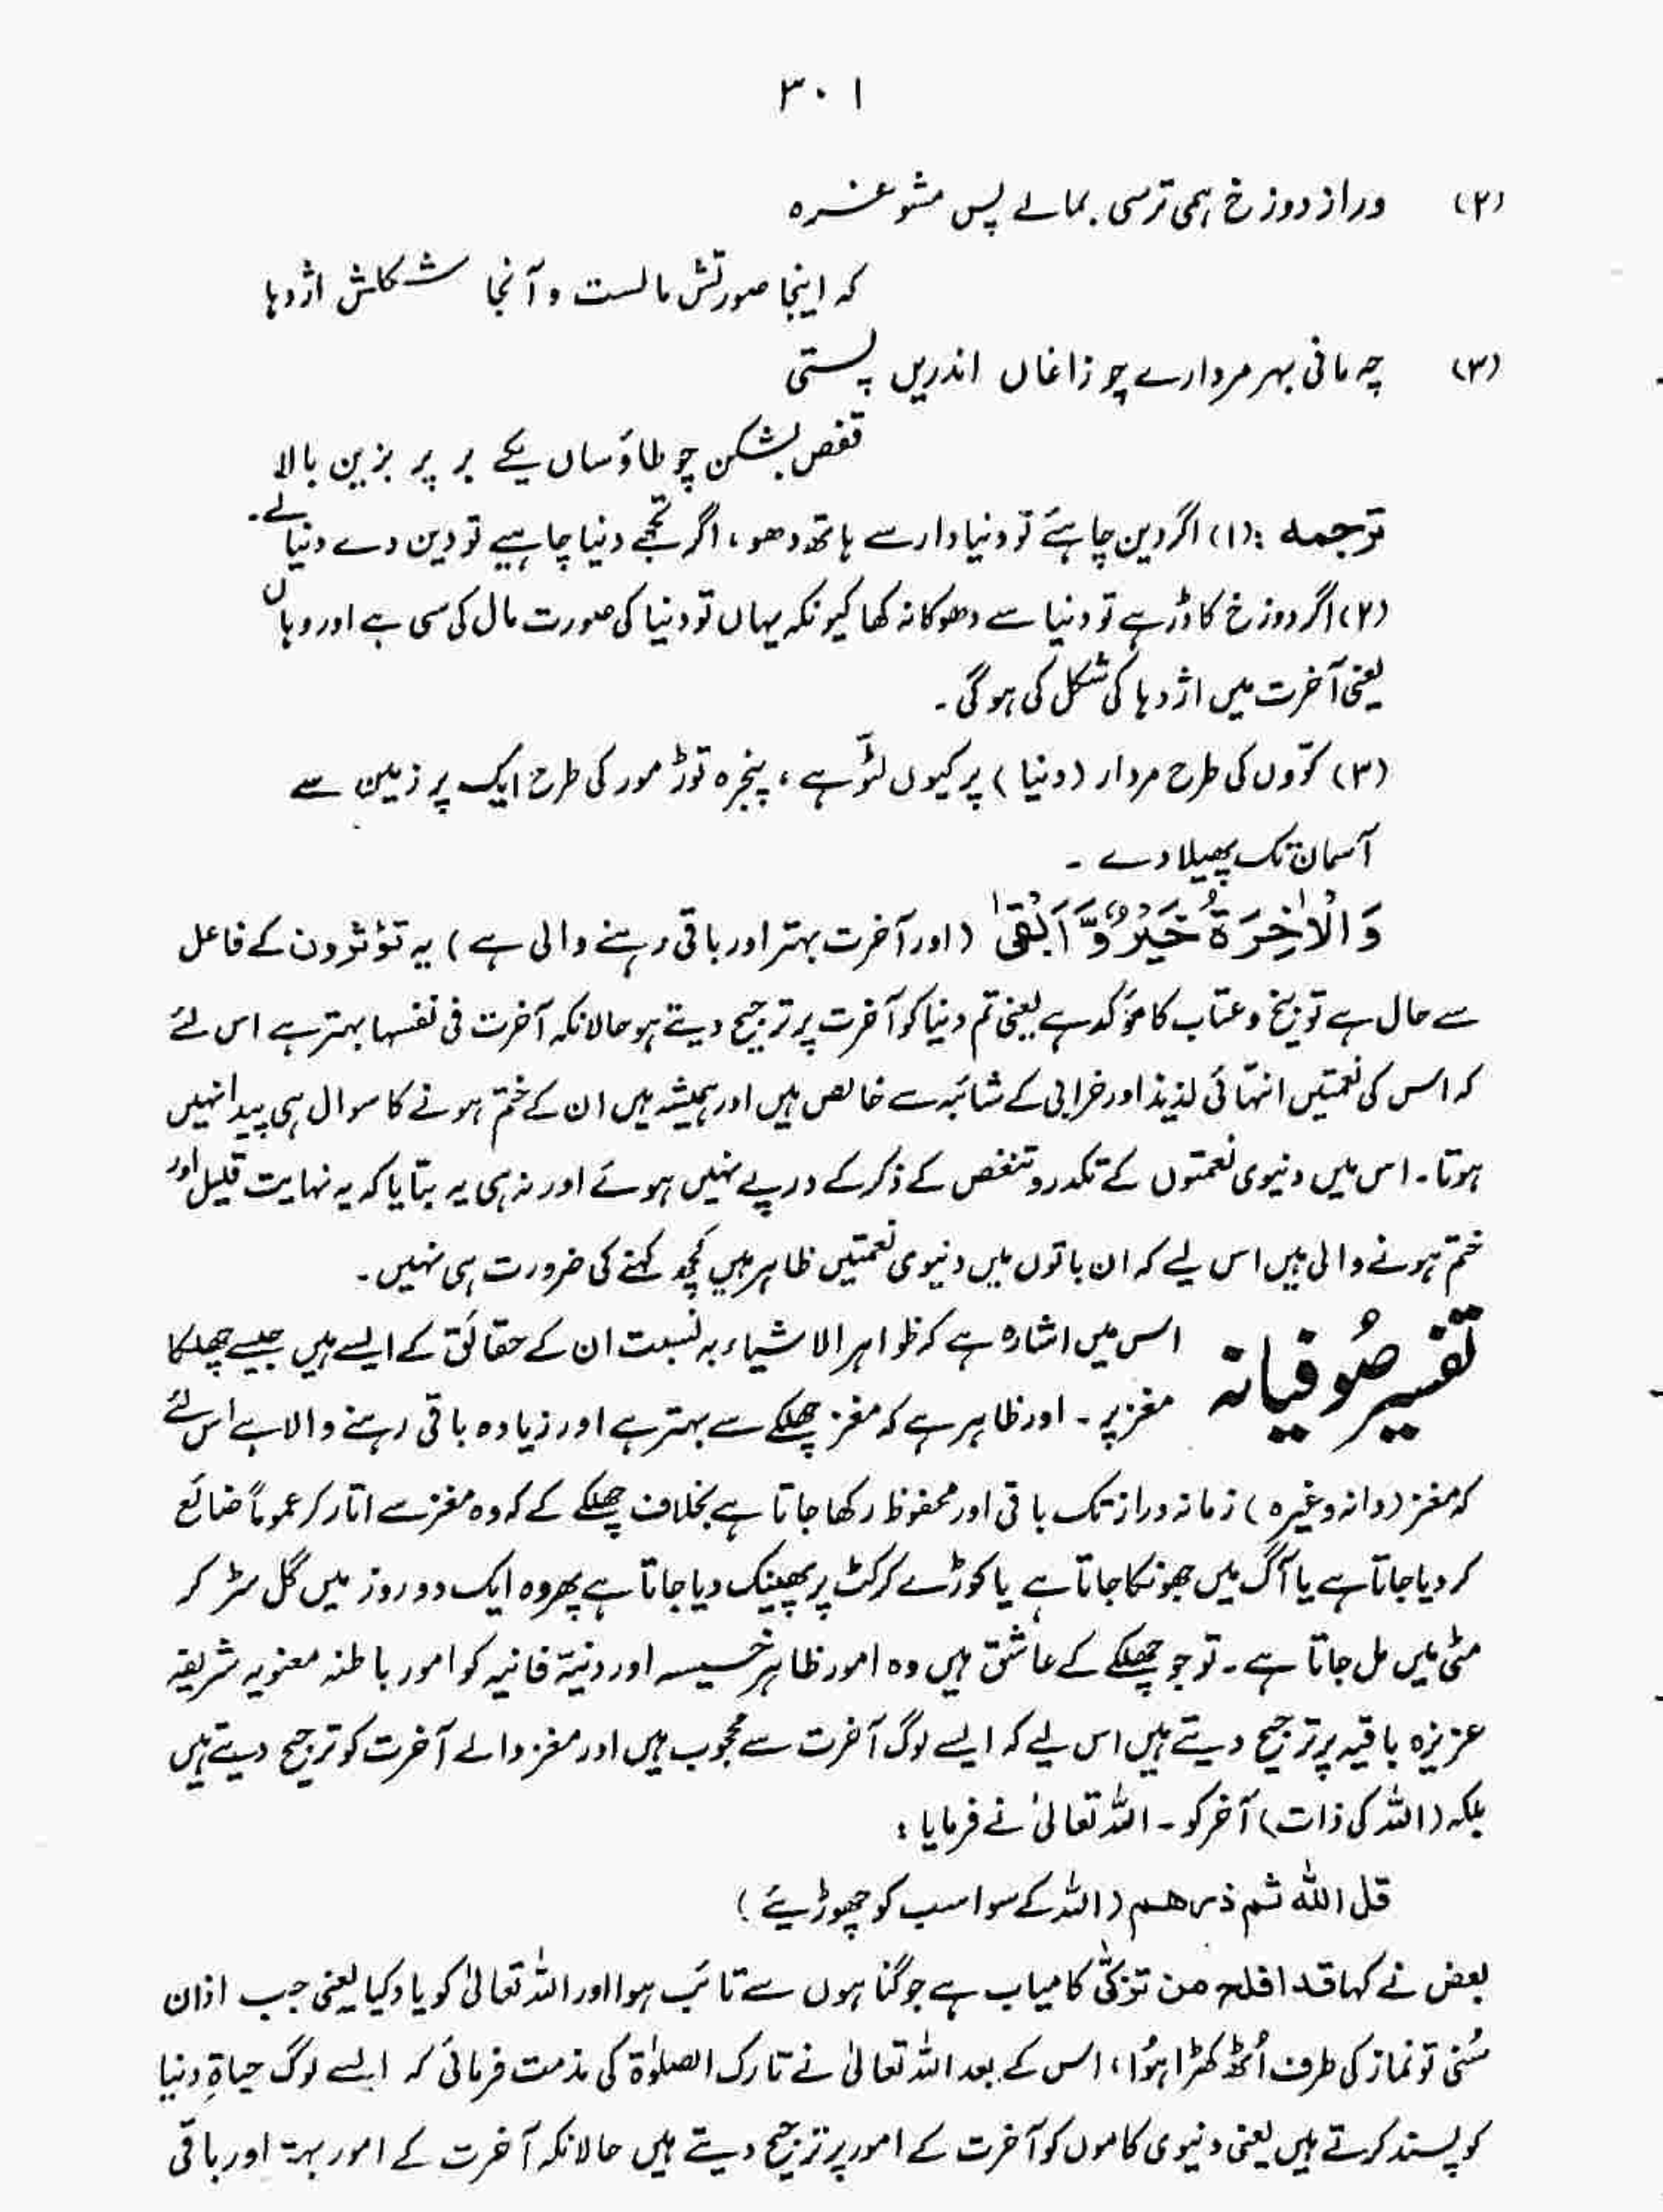 ٣٠١
(۲) وراز دوزخ ہمی ترسی بمالے پس مشو غرہ
کہ اینجا صورتش مالست و آنجا شکلش اژدہا
(۳) چہ مانی بہر مردارے چو زاغاں اندریں پستی
قفص بشکن چو طاؤساں یکے بر پر بزین بالا
ترجمہ : (۱) اگر دین چاہئے تو دنیا دار سے ہاتھ دھو ، اگر تجھے دنیا چاہیے تو دین دے دنیا لے ۔
(۲) اگر دوزخ کا ڈر ہے تو دنیا سے دھوکا نہ کھا کیونکہ یہاں تو دنیا کی صورت مال کی سی ہے اور وہاں
یعنی آخرت میں اژدہا کی شکل کی ہوگی ۔
(۳) کوّوں کی طرح مردار (دنیا) پر کیوں لٹّو ہے ، پنجرہ توڑ مور کی طرح ایک پر زمین سے
آسمان تک پھیلا دے ۔
وَالْاٰخِرَةُ خَيْرٌ وَّاَبْقٰى (اور آخرت بہتر اور باقی رہنے والی ہے) یہ تؤثرون کے فاعل
سے حال ہے توبیخ و عتاب کا مؤکد ہے یعنی تم دنیا کو آخرت پر ترجیح دیتے ہو حالانکہ آخرت فی نفسہا بہتر ہے اس لئے
کہ اس کی نعمتیں انتہائی لذیذ اور خرابی کے شائبہ سے خالص ہیں اور ہمیشہ ہیں ان کے ختم ہونے کا سوال ہی پیدا نہیں
ہوتا ۔ اس میں دنیوی نعمتوں کے تکدر و تنغص کے ذکر کے درپے نہیں ہوئے اور نہ ہی یہ بتایا کہ یہ نہایت قلیل اور
ختم ہونے والی ہیں اس لیے کہ ان باتوں میں دنیوی نعمتیں ظاہر ہیں کچھ کہنے کی ضرورت ہی نہیں ۔
تفسیر صُوفیانہ اس میں اشارہ ہے کہ ظواہر الاشیاء بہ نسبت ان کے حقائق کے ایسے ہیں جیسے چھلکا
مغز پر ۔ اور ظاہر ہے کہ مغز چھلکے سے بہتر ہے اور زیادہ باقی رہنے والا ہے اس لئے
کہ مغز (دانہ وغیرہ) زمانہ دراز تک باقی اور محفوظ رکھا جاتا ہے بخلاف چھلکے کے کہ وہ مغز سے اتار کر عموماً ضائع
کر دیا جاتا ہے یا آگ میں جھونکا جاتا ہے یا کوڑے کرکٹ پر پھینک دیا جاتا ہے پھر وہ ایک دو روز میں گل سڑ کر
مٹی میں مل جاتا ہے ۔ تو جو چھلکے کے عاشق ہیں وہ امور ظاہر خسیسہ اور دنیۃ فانیہ کو امور باطنہ معنویہ شریفہ
عزیزہ باقیہ پر ترجیح دیتے ہیں اس لیے کہ ایسے لوگ آخرت سے محجوب ہیں اور مغز والے آخرت کو ترجیح دیتے ہیں
بلکہ (اللہ کی ذات) آخر کو ۔ اللہ تعالیٰ نے فرمایا :
قل اللہ ثم ذرھم (اللہ کے سوا سب کو چھوڑیئے)
بعض نے کہا قد افلح من تزکّٰی کامیاب ہے جو گناہوں سے تائب ہوا اور اللہ تعالیٰ کو یاد کیا یعنی جب اذان
سُنی تو نماز کی طرف اُٹھ کھڑا ہوُا ، اس کے بعد اللہ تعالیٰ نے تارک الصلوٰۃ کی مذمت فرمائی کہ ایسے لوگ حیاۃِ دنیا
کو پسند کرتے ہیں یعنی دنیوی کاموں کو آخرت کے امور پر ترجیح دیتے ہیں حالانکہ آخرت کے امور بہتر اور باقی